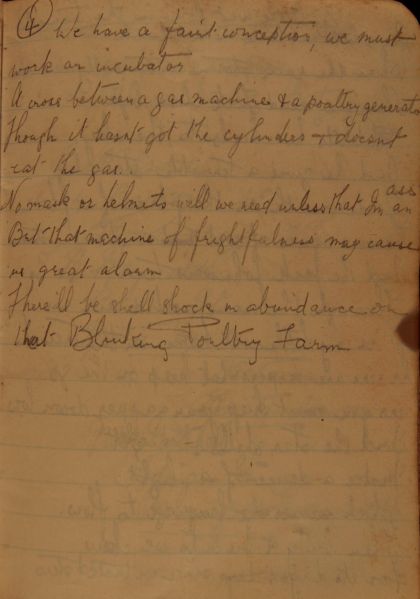 4 We have a faint conception, we must
work an incubator
A cross between a gas machine & a poultry generator
Though it hasn't got the cylinders & doesnt
eat the gas.
No mask or helmets will we need unless that I'm an ass
But that machine of frightfulness may cause
us great alarm
There'll be shell shock in abundance on
that Blinking Poultry Farm